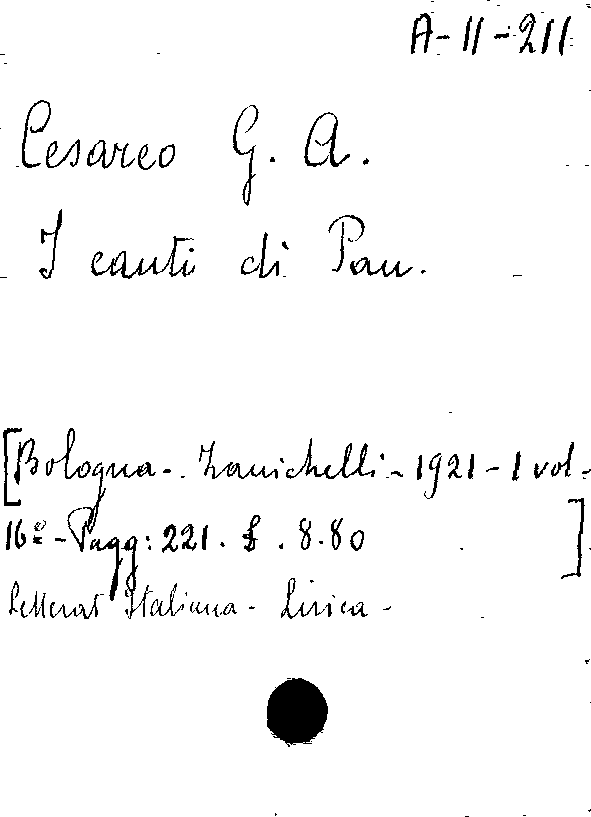 A-II-211
Cesareo G. A.
I canti di Pan.
[Bologna - Zanichelli - 1921 - 1 vol -
16º - Pagg: 221. £. 8.80 ]
Letterat Italiana - Lirica -